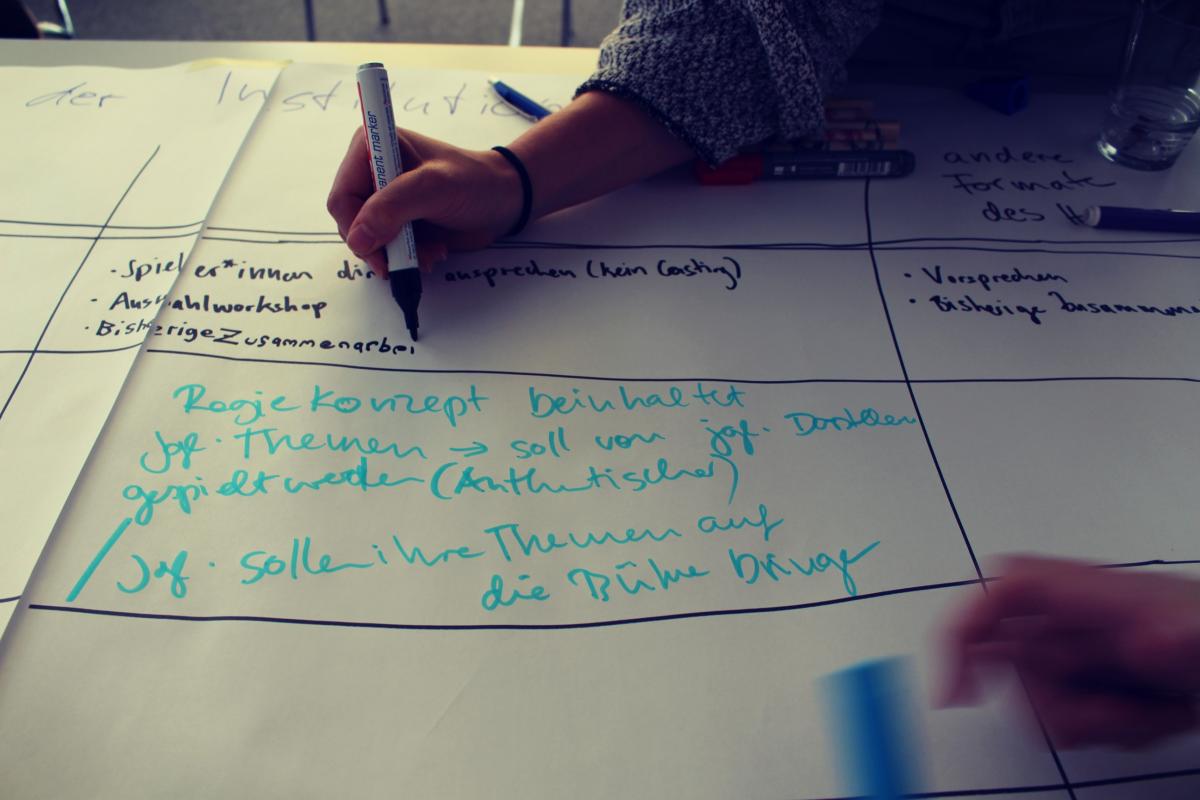 der Institutio
anent marker
andere
Formate
des H
· Spieler*innen di ansprechen (kein Casting)
· Auswahlworkshop
· Bisherige Zusammenarbei
· Vorsprechen
· Bisherige Zusammen
Regie Konzept beinhaltet
jgf. Themen → soll von jgf. Darstellern
gespielt werden (Authentischer)
/ Jgf. sollen ihre Themen auf
die Bühne bringe